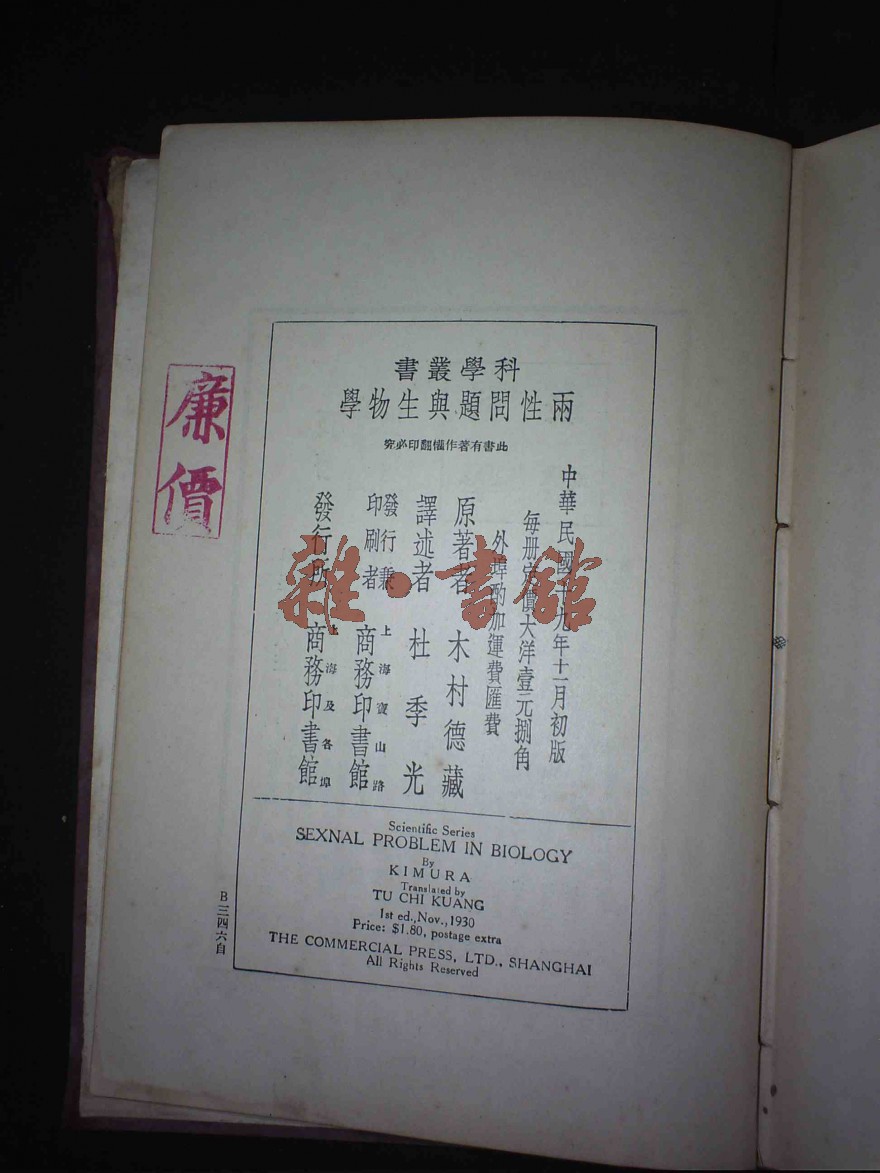 科學叢書
兩性問題與生物學
此書有著作權翻印必究
中華民國十九年十一月初版
每册定價大洋壹元捌角
外埠酌加運費匯費
原著者 木村德藏
譯述者 杜季光
發行兼
印刷者
上海寶山路
商務印書館
發行所
上海及各埠
商務印書館
Scientific Series
SEXNAL PROBLEM IN BIOLOGY
By
KIMURA
Translated by
TU CHI KUANG
1st ed., Nov., 1930
Price: $1.80, postage extra
THE COMMERCIAL PRESS, LTD., SHANGHAI
All Rights Reserved
B三四六自
廉價
雜·書館